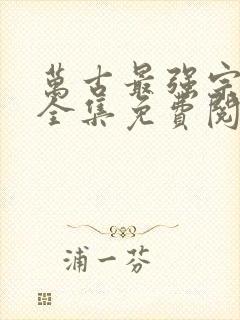 萬古最强宗
全集免費閱
浦一芬